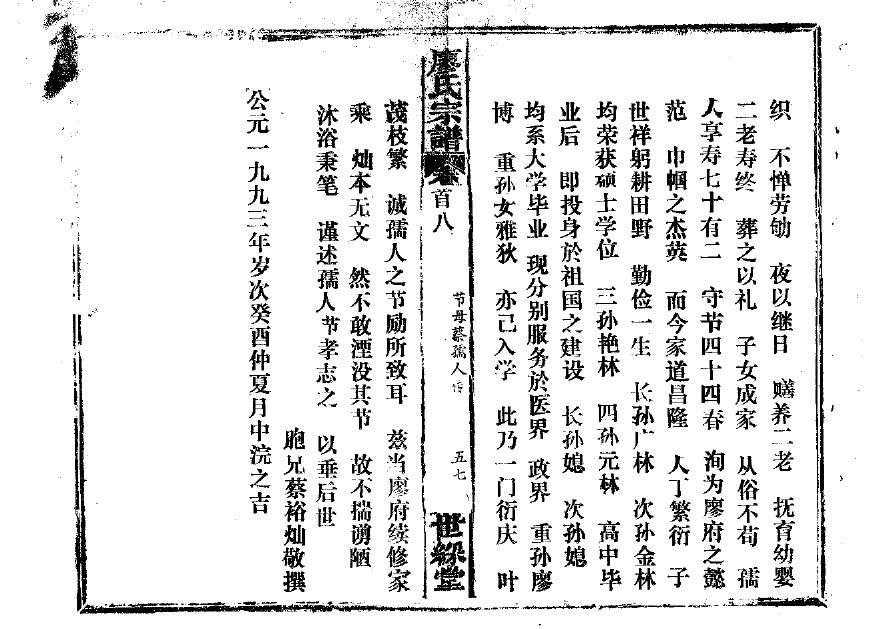 织　不惮劳劬　夜以继日　赡养二老　抚育幼婴
二老寿终　葬之以礼　子女成家　从俗不苟　孺
人享寿七十有二　守节四十四春　洵为廖府之懿
范　巾帼之杰英　而今家道昌隆　人丁繁衍　子
世祥躬耕田野　勤俭一生　长孙广林　次孙金林
均荣获硕士学位　三孙艳林　四孙元林　高中毕
业后　即投身於祖国之建设　长孙媳　次孙媳
均系大学毕业　现分别服务於医界　政界　重孙廖
博　重孙女雅狄　亦已入学　此乃一门衍庆　叶
廖氏宗譜卷首八
节母蔡孺人传
五七
世綵堂
茂枝繁　诚孺人之节励所致耳　兹当廖府续修家
乘　灿本无文　然不敢湮没其节　故不揣谫陋
沐浴秉笔　谨述孺人节孝志之　以垂后世
胞兄蔡裕灿敬撰
公元一九九三年岁次癸酉仲夏月中浣之吉